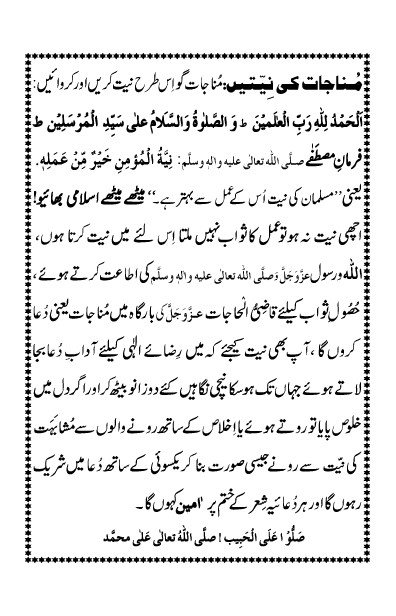 مُناجات کی نِیّتیں: مُناجات گو اِس طرح نیت کریں اور کروائیں:
اَلْحَمْدُ لِلّٰهِ رَبِّ الْعٰلَمِیْنَ ط وَ الصَّلٰوةُ وَالسَّلَامُ عَلٰی سَیِّدِ الْمُرْسَلِیْن ط
فرمانِ مصطَفٰے صلَّی اللہ تعالٰی علیہ والہٖ وسلَّم: نِیَّةُ الْمُؤْمِنِ خَیْرٌ مِّنْ عَمَلِهٖ.
یعنی ’’مسلمان کی نیت اُس کے عمل سے بہتر ہے۔‘‘ میٹھے میٹھے اسلامی بھائیو!
اچھی نیت نہ ہو تو عمل کا ثواب نہیں ملتا اِس لئے میں نیت کرتا ہوں،
اللہ و رسول عزَّوَجَلَّ وَصلَّی اللہ تعالٰی علیہ والہٖ وسلَّم کی اطاعت کرتے ہوئے،
حُصُولِ ثواب کیلئے قاضِیُ الْحاجات عزَّوَجَلَّ کی بارگاہ میں مُناجات یعنی دُعا
کروں گا، آپ بھی نیت کیجئے کہ میں رِضائے الٰہی کیلئے آدابِ دُعا بجا
لاتے ہوئے جہاں تک ہو سکا نیچی نگاہیں کئے دو زانو بیٹھ کر اور اگر دل میں
خلوص پایا تو روتے ہوئے یا اِخلاص کے ساتھ رونے والوں سے مُشابَہَت
کی نیّت سے رونے جیسی صورت بنا کر یکسوئی کے ساتھ دُعا میں شریک
رہوں گا اور ہر دُعائیہ شِعر کے ختم پر اٰمین کہوں گا۔
صَلُّوْا عَلَی الْحَبِیب! صلَّی اللہُ تعالٰی عَلٰی محمَّد